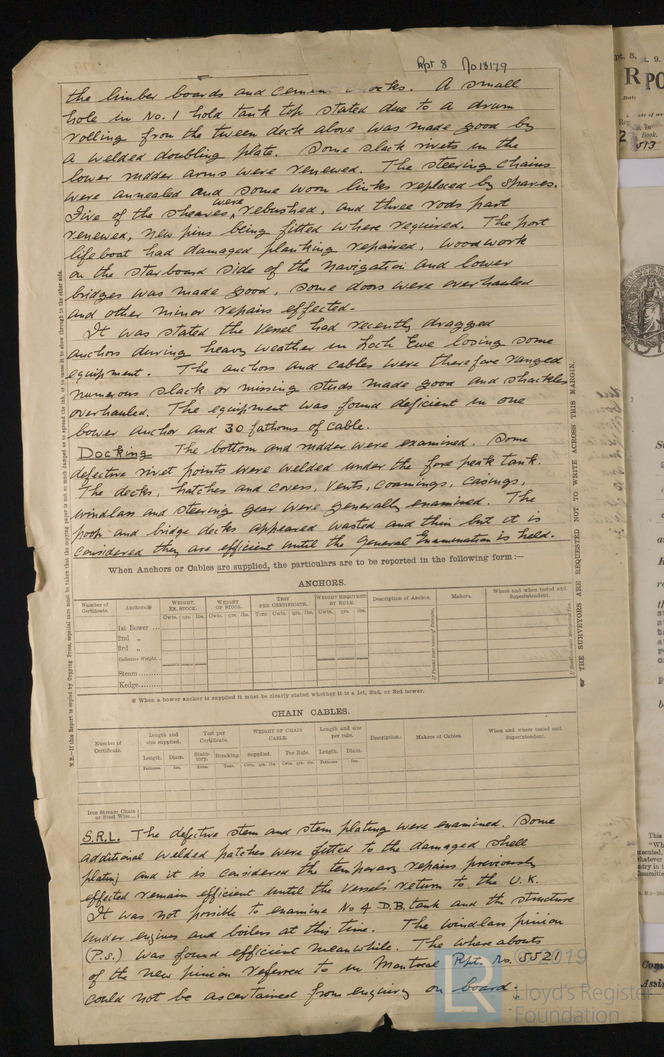 Rpt 8 No 18179
the limber boards and cement blocks. A small
hole in No. 1 hold tank top stated due to a drum
rolling from the tween deck above was made good by
a welded doubling plate. Some slack rivets in the
lower rudder arms were renewed. The steering chains
were annealed and some worn links replaced by spares.
Five of the sheaves were rebushed, and three rods part
renewed, new pins being fitted where required. The port
lifeboat had damaged planking repaired, woodwork
on the starboard side of the navigation and lower
bridges was made good, some doors were overhauled
and other minor repairs effected.
It was stated the Vessel had recently dragged
anchors during heavy weather in Loch Ewe losing some
equipment. The anchors and cables were therefore ranged
numerous slack or missing studs made good and shackles
overhauled. The equipment was found deficient in one
bower anchor and 30 fathoms of cable.
Docking The bottom and rudder were examined. Some
defective rivet points were welded under the fore peak tank.
The decks, hatches and covers, vents, coamings, casings,
windlass and steering gear were generally examined. The
poop and bridge decks appeared wasted and thin but it is
considered they are efficient until the General Examination is held.
When Anchors or Cables are supplied, the particulars are to be reported in the following form:—
ANCHORS.
Number of Certificate. Anchors.* WEIGHT, EX. STOCK. WEIGHT OF STOCK. TEST PER CERTIFICATE. WEIGHT REQUIRED BY RULE. Description of Anchor. Makers. Where and when tested and Superintendent.
Cwts. qrs. lbs. Cwts. qrs. lbs. Tons Cwts. qrs. lbs. Cwts. qrs. lbs.
1st Bower ...
2nd „
3rd „
Collective Weight.
Stream........
Kedge..........
* When a bower anchor is supplied it must be clearly stated whether it is a 1st, 2nd, or 3rd bower.
CHAIN CABLES.
Number of Certificate. Length and size supplied. Test per Certificate. WEIGHT OF CHAIN CABLE. Length and size per rule. Description. Makers of Cables. Where and when tested and Superintendent.
Length. Diam. Statutory. Breaking. Supplied. Per Rule. Length. Diam.
Fathoms. Ins. Tons. Tons. Cwts. qrs. lbs. Cwts. qrs. lbs. Fathoms. Ins.
Iron Stream Chain or Steel Wire...
S.R.L. The defective stem and stem plating were examined. Some
additional welded patches were fitted to the damaged shell
plating and it is considered the temporary repairs previously
effected remain efficient until the Vessel's return to the U.K.
It was not possible to examine No 4 D.B. tank and the structure
under engines and boilers at this time. The windlass pinion
(P.S.) was found efficient meanwhile. The whereabouts
of the new pinion referred to in Montreal Rpt. No. 5521
could not be ascertained from enquiry on board.
N.B.—If this Report is copied by Copying Press, especial care must be taken that the copying paper is not so much damped as to spread the ink, or to cause it to show through to the other side.
THE SURVEYORS ARE REQUESTED NOT TO WRITE ACROSS THIS MARGIN.
© 2019
LR
Lloyd's Register
Foundation